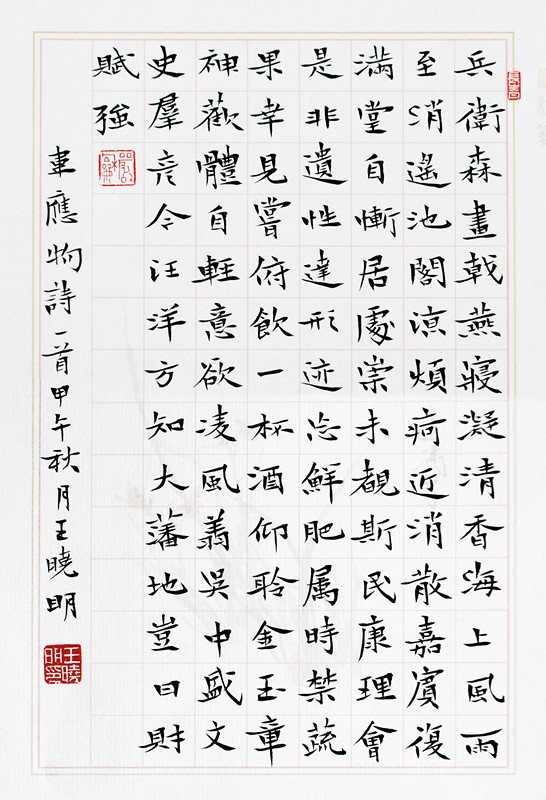 兵衛森畫戟燕寢凝清香海上風雨
至消遙池閣涼煩疴近消散嘉賓復
滿堂自慚居處崇未覩斯民康理會
是非遺性達形迹忘鮮肥属時禁蔬
果幸見嘗俯飲一杯酒仰聆金玉章
神歡體自輕意欲凌風義吳中盛文
史羣彦今汪洋方知大藩地豈曰財
賦強
韋應物詩一首甲午秋月王曉明
王曉明印